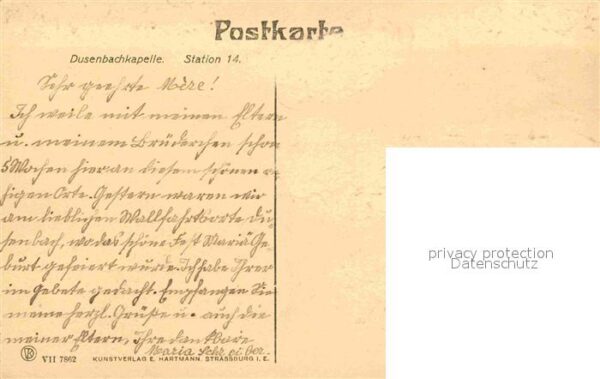 Postkarte
Dusenbachkapelle. Station 14.
Sehr geehrte Mère!
Ich weile mit meinen Eltern
u. meinem Brüderchen schon
5 Wochen hier an diesem schönen ru-
higen Orte. Gestern waren wir
am lieblichen Wallfahrtsorte Du-
senbach, wo das schöne Fest Mariä Ge-
burt gefeiert wurde. Ich habe Ihrer
im Gebete gedacht. Empfangen Sie
meine herzl. Grüße u. auch die
meiner Eltern, Ihre dankbare
Maria
VII 7862
KUNSTVERLAG E. HARTMANN, STRASSBURG I. E.
privacy protection
Datenschutz